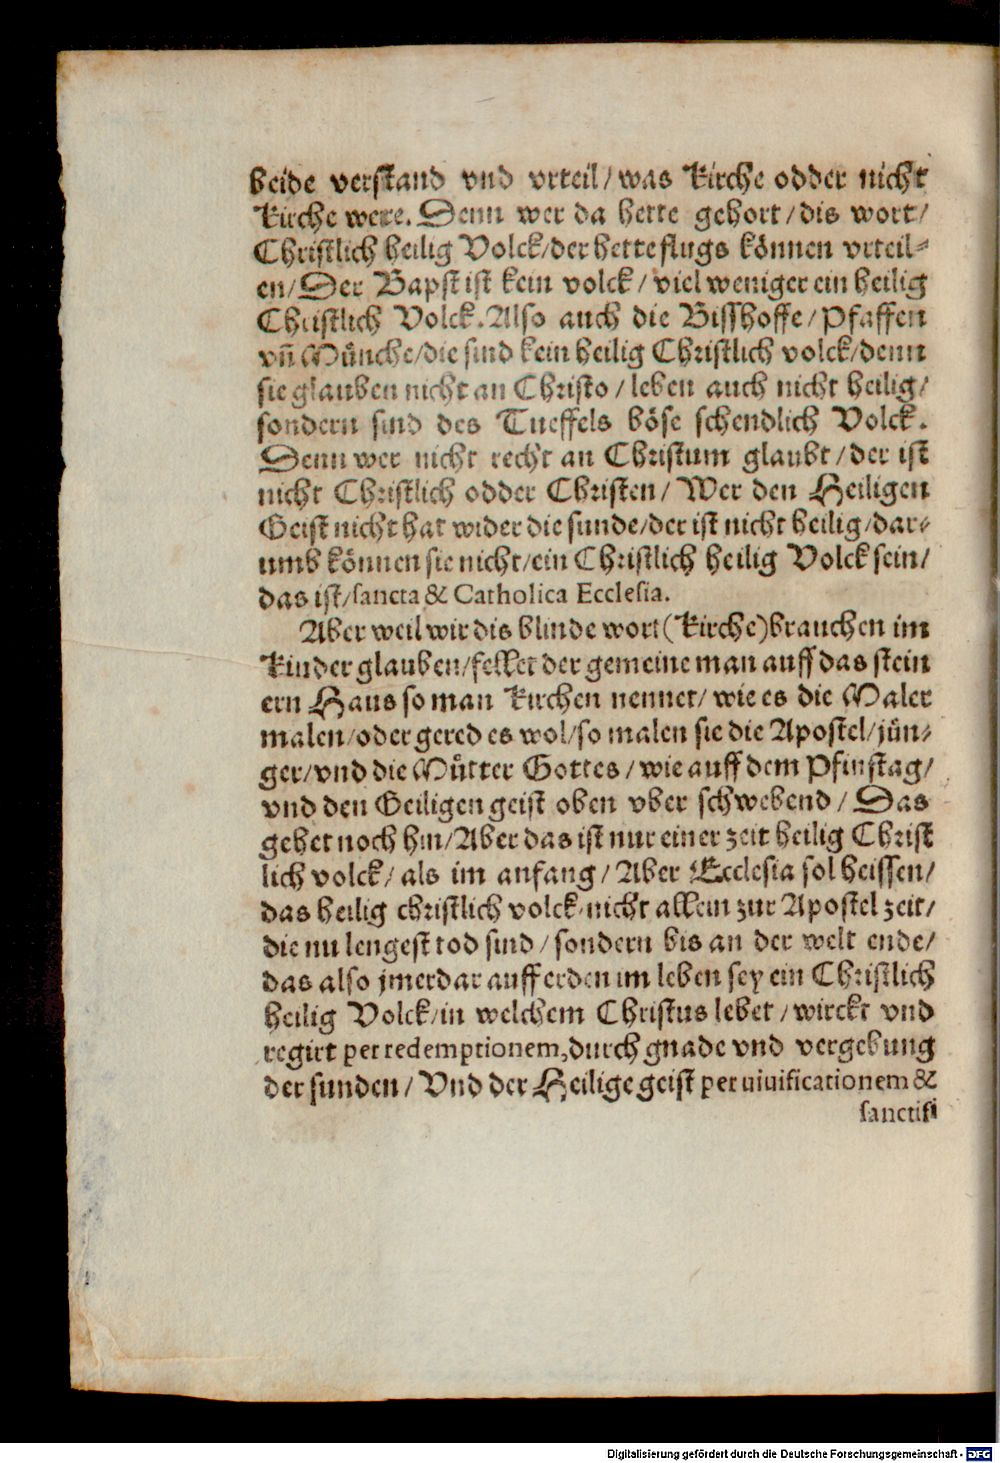 beide verstand vnd vrteil/was Kirche odder nicht
Kirche were. Denn wer da hette gehort/dis wort/
Christlich heilig Volck/der hette flugs können vrteil-
en/Der Bapst ist kein volck/viel weniger ein heilig
Christlich Volck. Also auch die Bisshoffe/Pfaffen
vñ Münche/die sind kein heilig Christlich volck/denn
sie glauben nicht an Christo/leben auch nicht heilig/
sondern sind des Tueffels böse schendlich Volck.
Denn wer nicht recht an Christum glaubt/der ist
nicht Christlich odder Christen/Wer den Heiligen
Geist nicht hat wider die sunde/der ist nicht heilig/dar-
umb können sie nicht/ein Christlich heilig Volck sein/
das ist/sancta & Catholica Ecclesia.
Aber weil wir dis blinde wort(Kirche)brauchen im
Kinder glauben/fellet der gemeine man auff das stein
ern Haus so man Kirchen nennet/wie es die Maler
malen/oder gered es wol/so malen sie die Apostel/jün-
ger/vnd die Mütter Gottes/wie auff dem Pfinstag/
vnd den Geiligen geist oben vber schwebend/Das
gehet noch hin/Aber das ist nur einer zeit heilig Christ
lich volck/als im anfang/Aber Ecclesia sol heissen/
das heilig christlich volck/nicht allein zur Apostel zeit/
die nu lengest tod sind/sondern bis an der welt ende/
das also jmerdar auff erden im leben sey ein Christlich
heilig Volck/in welchem Christus lebet/wirckt vnd
regirt per redemptionem,durch gnade vnd vergebung
der sunden/Vnd der Heilige geist per uiuificationem &
sanctifi
Digitalisierung gefördert durch die Deutsche Forschungsgemeinschaft - DFG